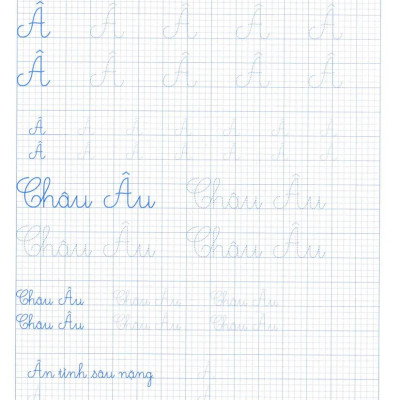 Â Â Â Â Â
Â Â Â Â Â
Â Â Â Â Â Â Â
Â Â Â Â Â Â Â
Châu Âu Châu Âu
Châu Âu Châu Âu
Châu Âu Châu Âu Châu Âu
Châu Âu Châu Âu Châu Âu
Ân tình sâu nặng